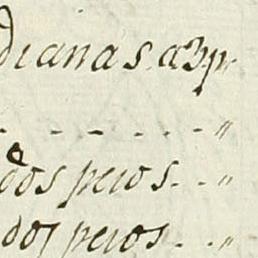 dianas. a 3 p.
- - - - - - "
dos pesos. - - "
dos pesos - - "